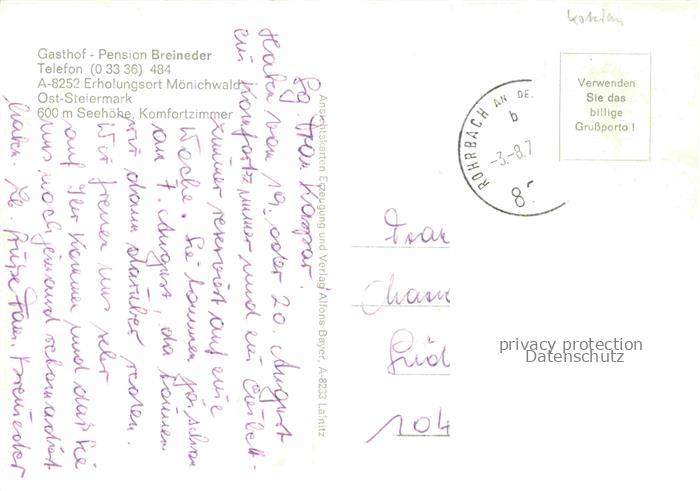 Gasthof - Pension Breineder
Telefon (0 33 36) 484
A-8252 Erholungsort Mönichwald
Ost-Steiermark
600 m Seehöhe, Komfortzimmer
Sg. Frau Kaspar!
Haben vom 19. oder 20. August
ein Komfortzimmer und ein Einbett-
zimmer reserviert auf eine
Woche. Sie kommen ja schon
am 7. August, da können
wir dann darüber reden.
Wir freuen uns sehr
auf Ihr Kommen und daß Sie
uns noch jemand
haben. Lb. Grüße Fam. Breineder
Ansichtskarten Erzeugung und Verlag Alfons Bayer, A-8233 Lafnitz
ROHRBACH AN DE.
b
-3.-8.7
8
Verwenden
Sie das
billige
Grußporto !
Frau
104
privacy protection
Datenschutz